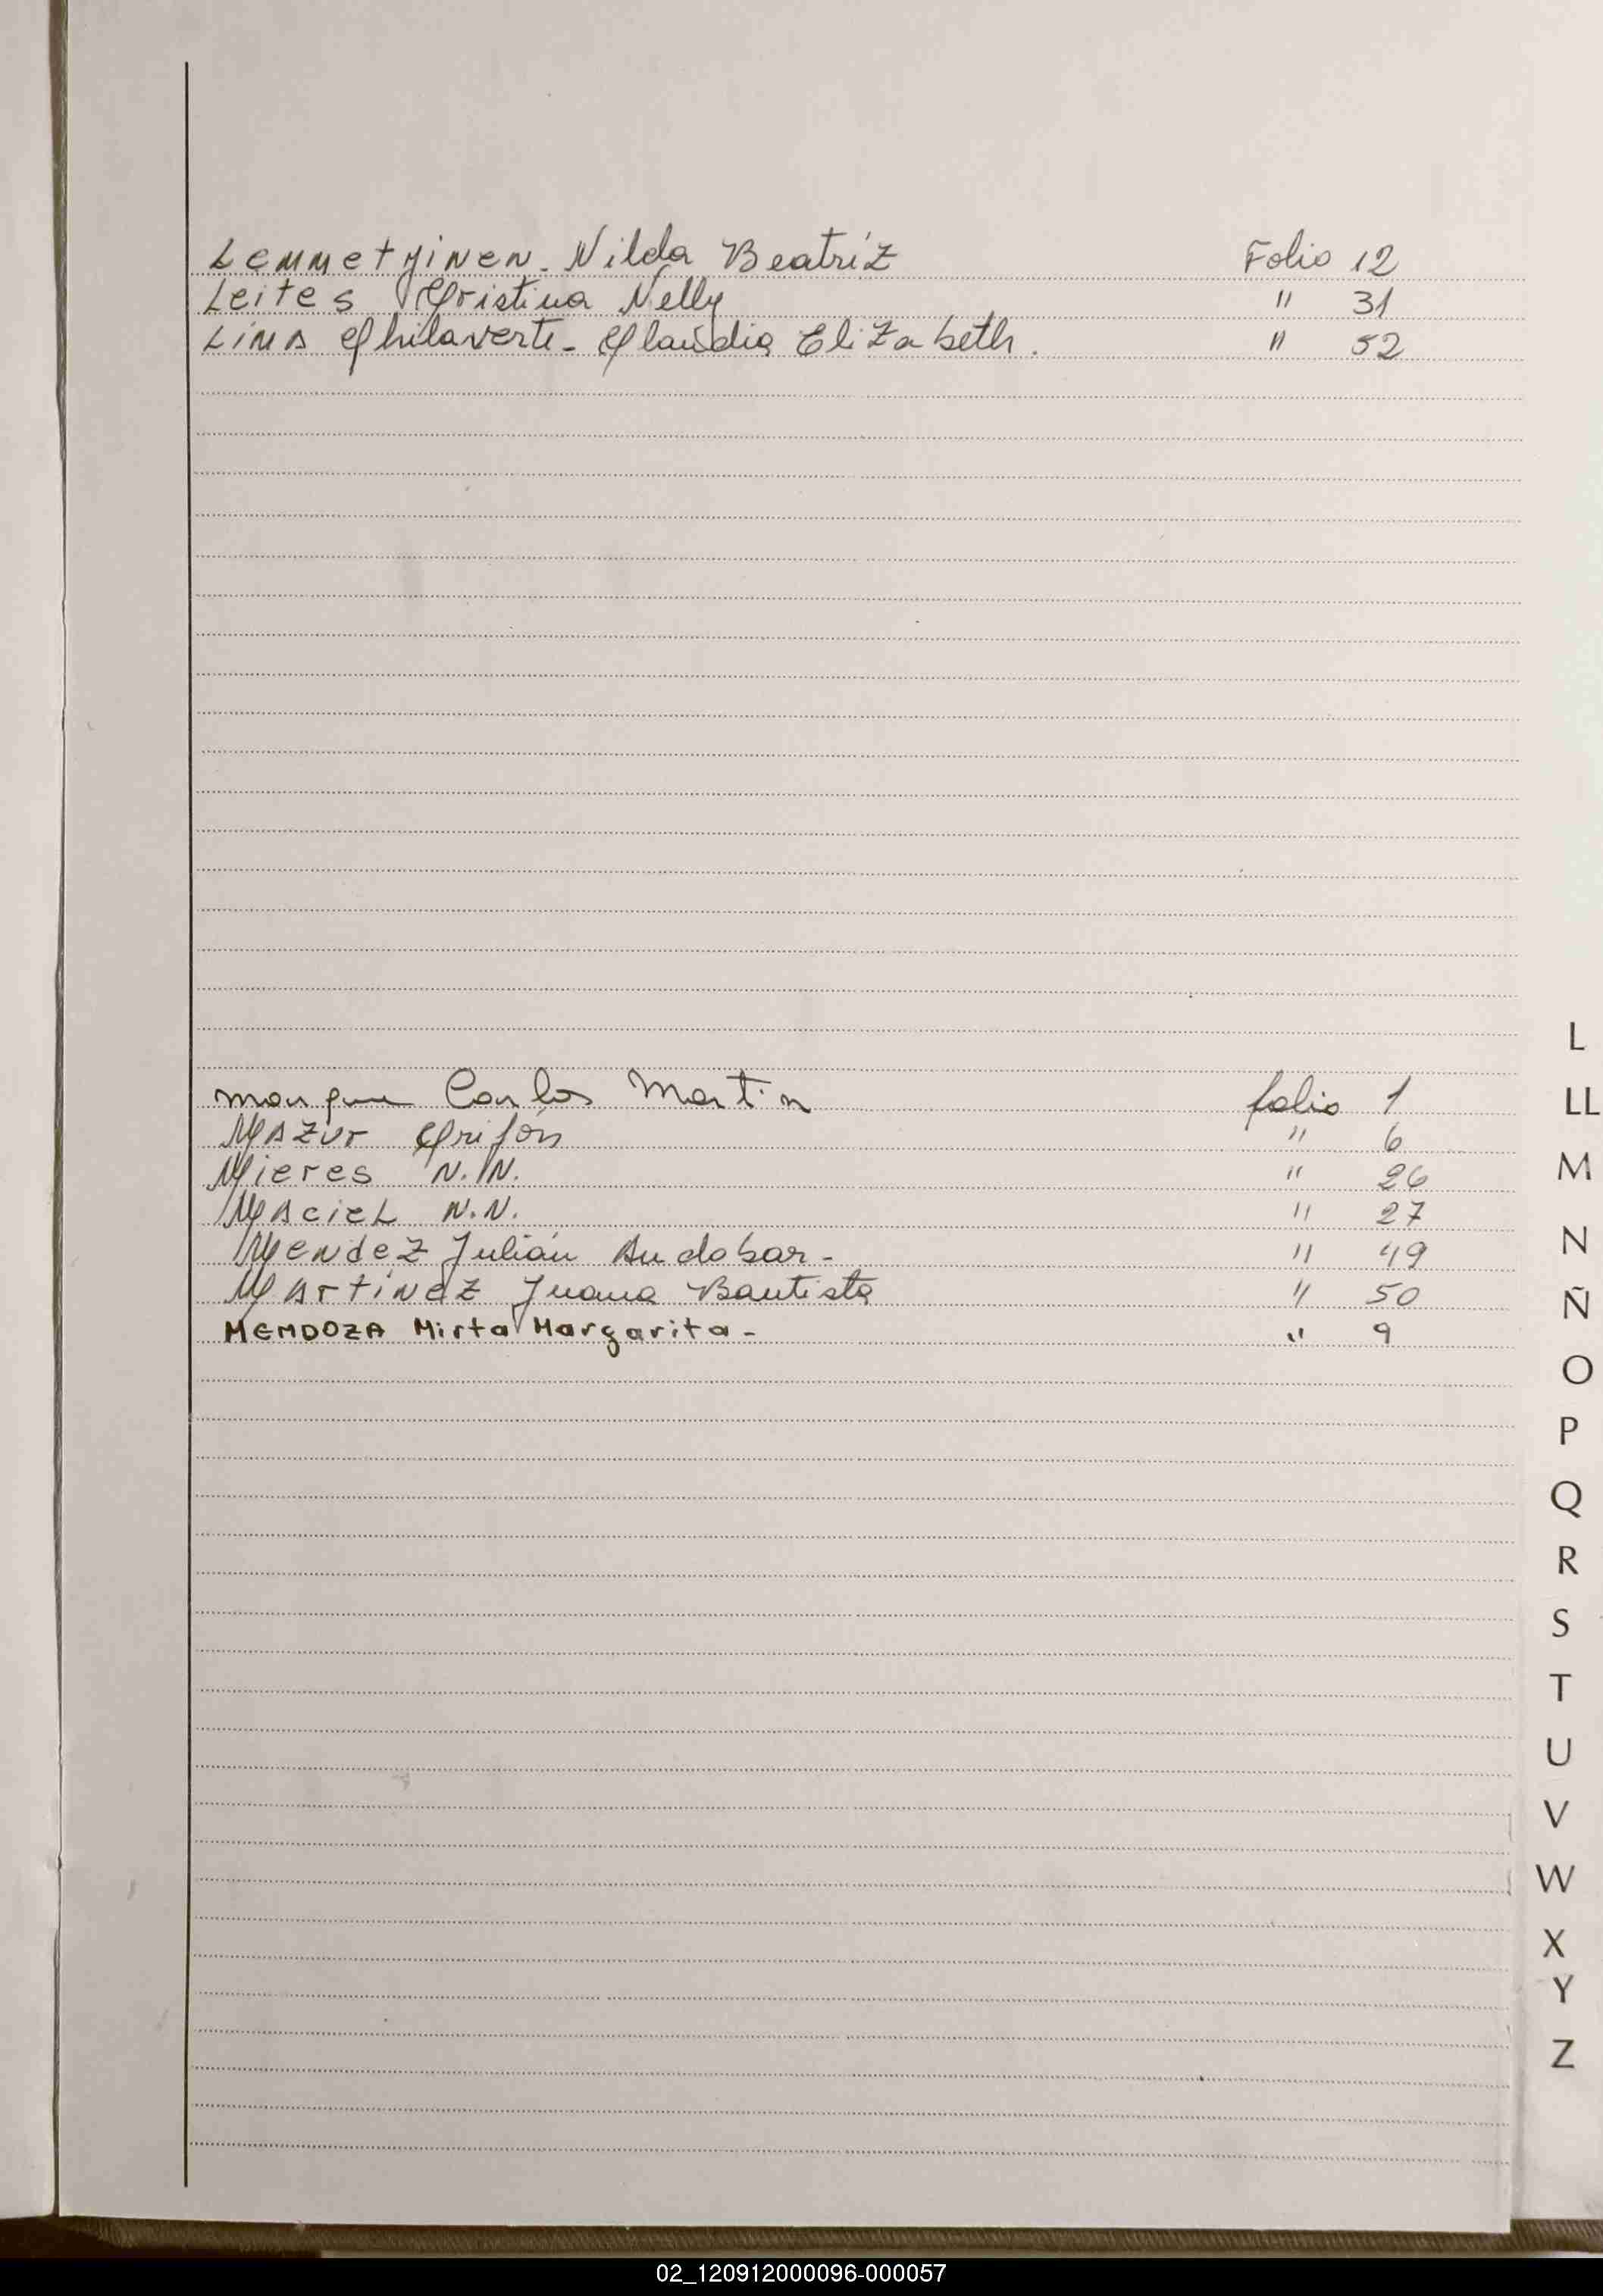 Lemmetyinen - Nilda Beatríz Folio 12
Leites Cristina Nelly " 31
Lima Chilaverte - Claudia Elizabeth. " 52
Carlos Martin folio 1
Mazur Crifón " 6
Mieres N.N. " 26
Maciel N.N. " 27
Mendez Julián Andobar - " 49
Martínez Juana Bautista " 50
MENDOZA Mirta Margarita - " 9
L
LL
M
N
Ñ
O
P
Q
R
S
T
U
V
W
X
Y
Z
02_120912000096-000057